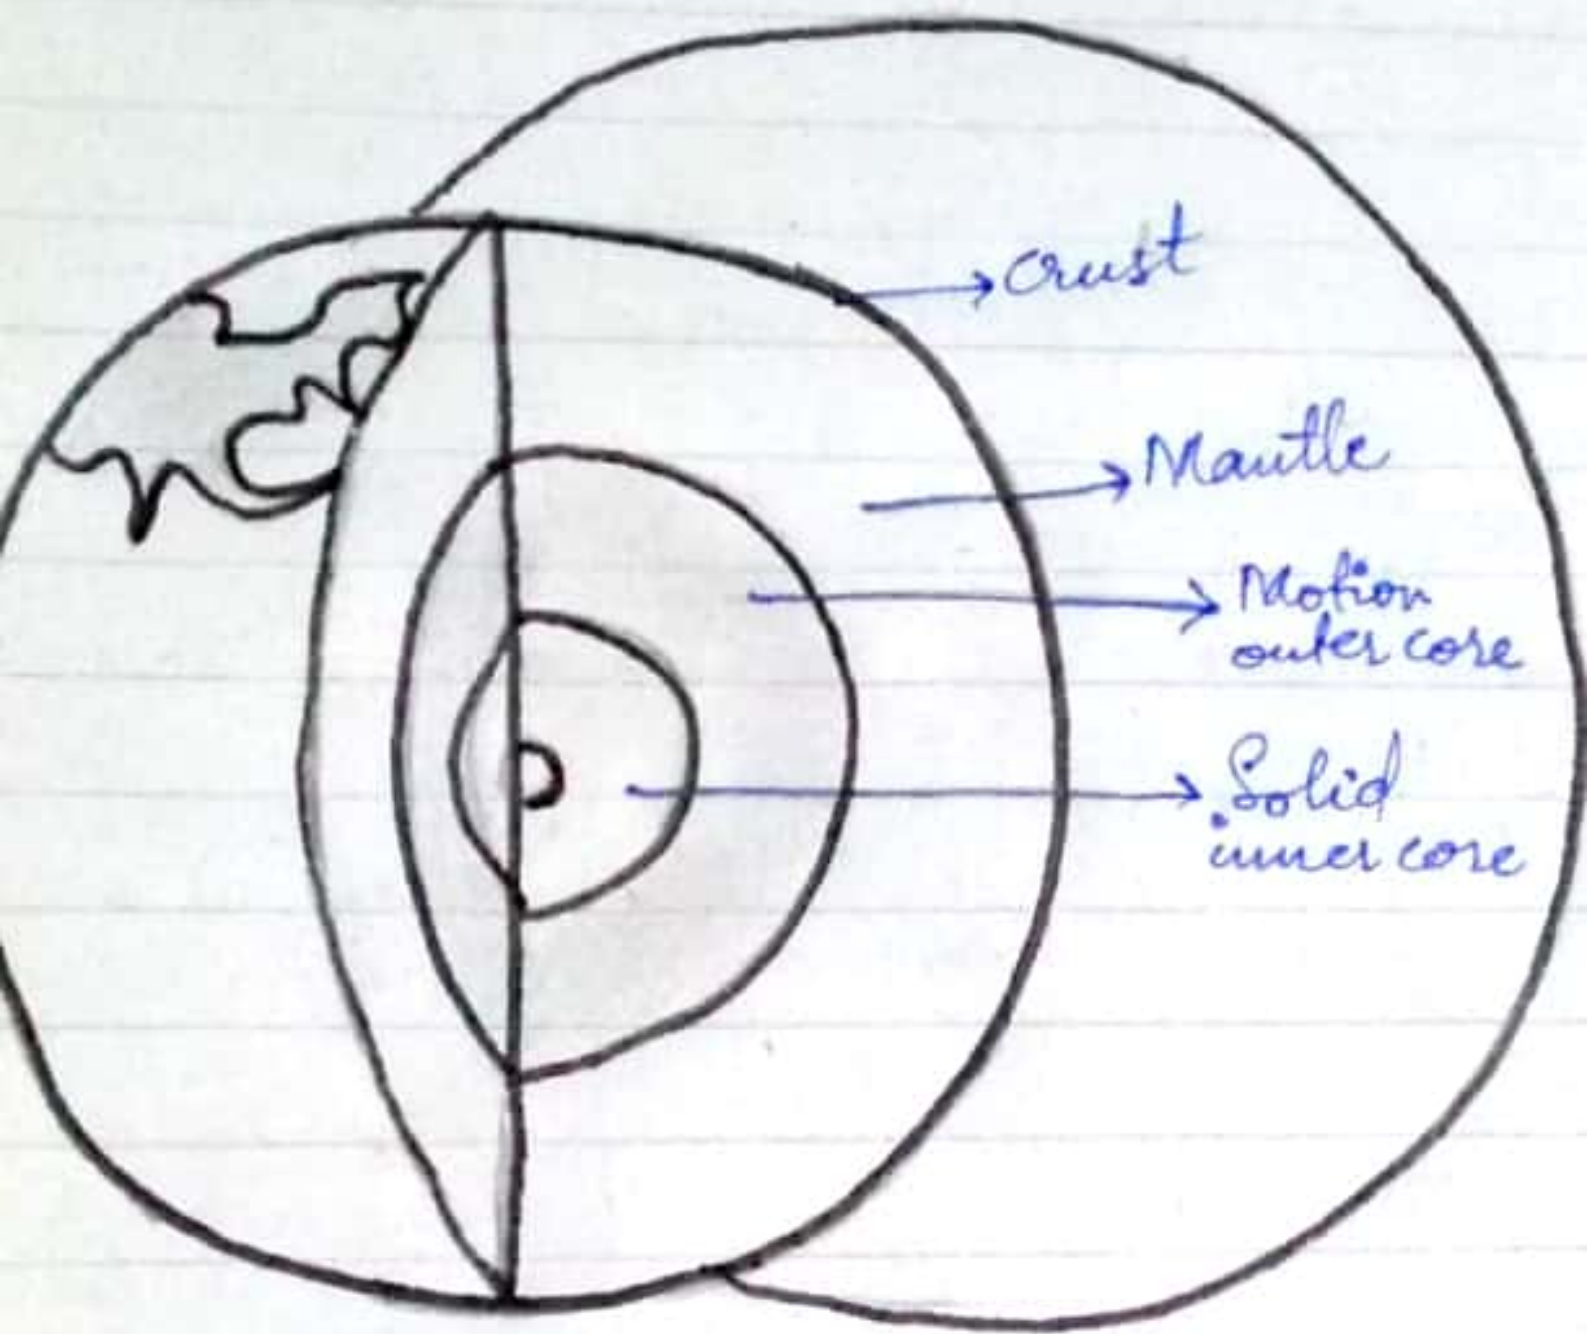 Crust
Mantle
Motion
outer core
Solid
inner core